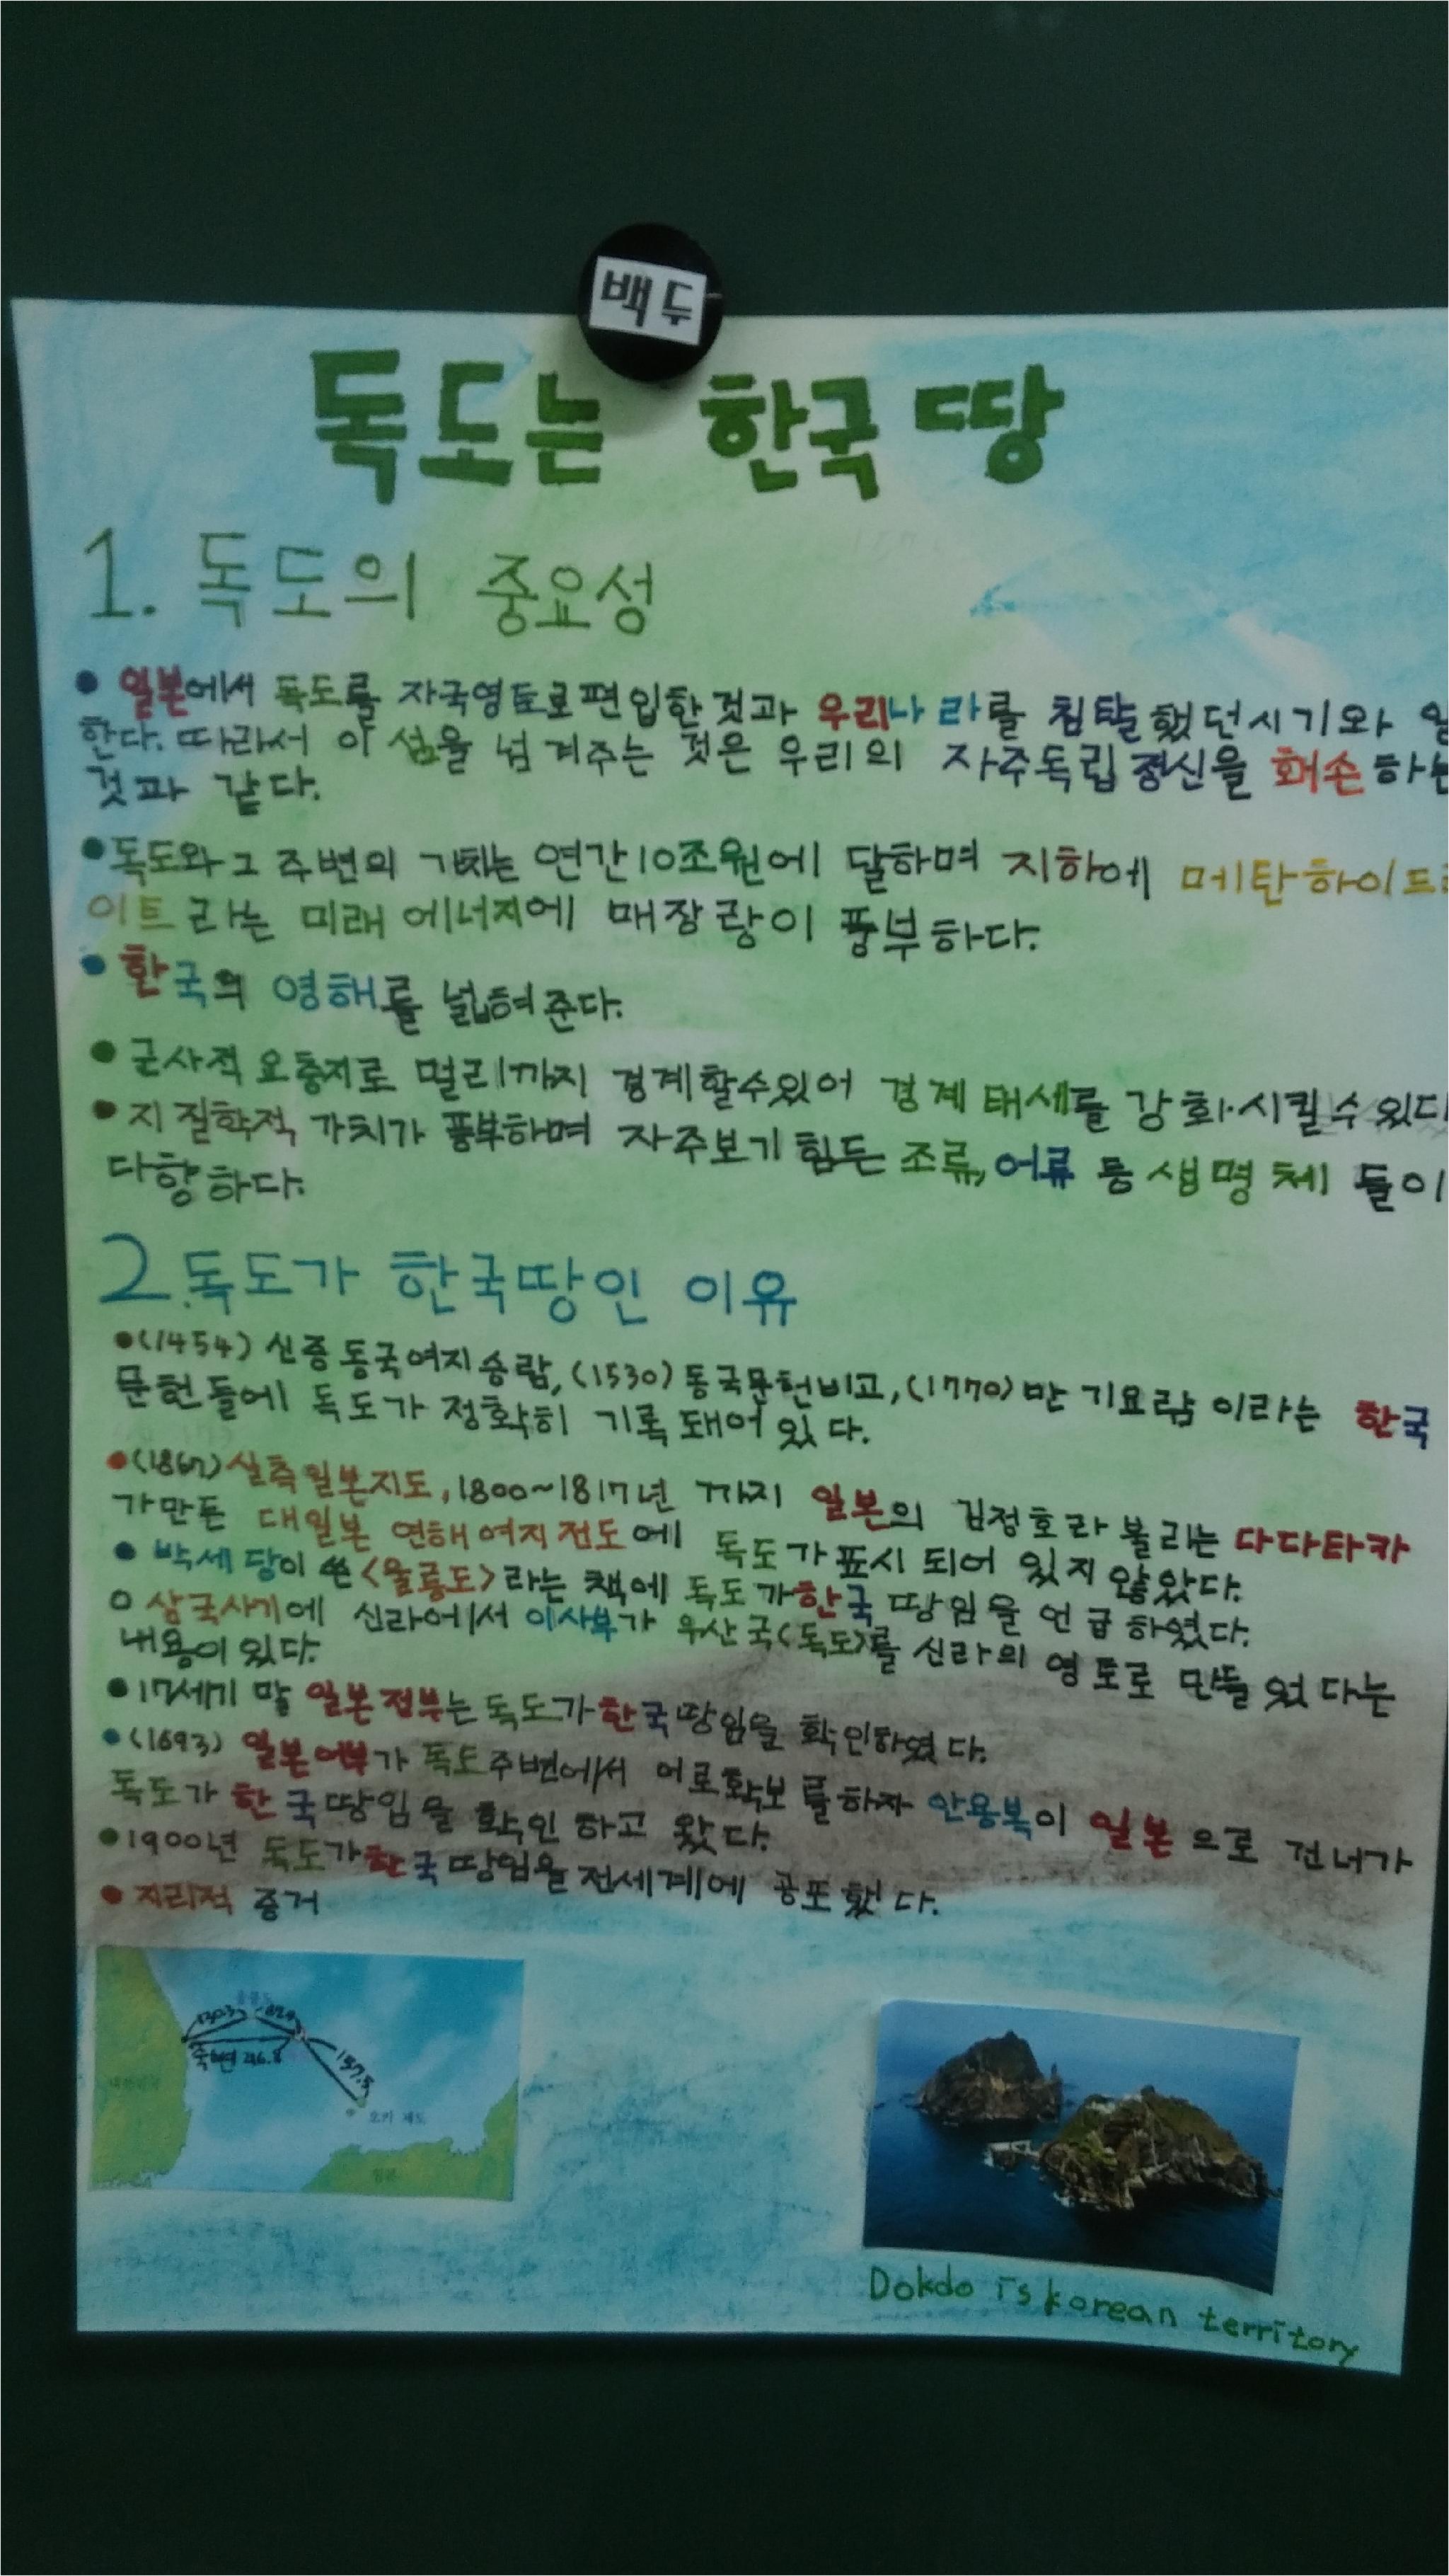 백두
독도는 한국 땅
1. 독도의 중요성
• 일본에서 독도를 자국영토로 편입한 것과 우리나라를 침탈했던시기와 일
한다. 따라서 이 섬을 넘겨주는 것은 우리의 자주독립 정신을 훼손하는
것과 같다.
• 독도와 그 주변의 가치는 연간 10조원에 달하며 지하에 메탄하이드
이트라는 미래 에너지에 매장량이 풍부하다.
• 한국의 영해를 넓혀준다.
• 군사적 요충지로 멀리까지 경계할수있어 경계태세를 강화시킬수 있다
• 지질학적 가치가 풍부하며 자주보기 힘든 조류, 어류 등 생명체 들이
다향하다.
2. 독도가 한국땅인 이유
• (1454) 신증동국여지승람, (1530) 동국문헌비고, (1770) 만기요람 이라는 한국
문헌들에 독도가 정확히 기록 돼어 있다.
• (1867) 실측일본지도, 1800~1817년 까지 일본의 김정호라 불리는 다다타카
가만든 대일본 연해여지전도에 독도가 표시 되어 있지 않았다.
• 박세당이 쓴 <울릉도>라는 책에 독도가 한국 땅임을 언급 하였다.
○ 삼국사기에 신라에서 이사부가 우산국(독도)를 신라의 영토로 만들었다는
내용이 있다.
• 17세기 말 일본정부는 독도가 한국땅임을 확인하였다.
• (1693) 일본어부가 독도주변에서 어로확보를하자 안용복이 일본으로 건너가
독도가 한국땅임을 확인 하고 왔다.
• 1900년 독도가 한국땅임을 전세계에 공포했다.
• 지리적 증거
130.3
죽변 216.8
157.5
오키 제도
일본
Dokdo is korean territory